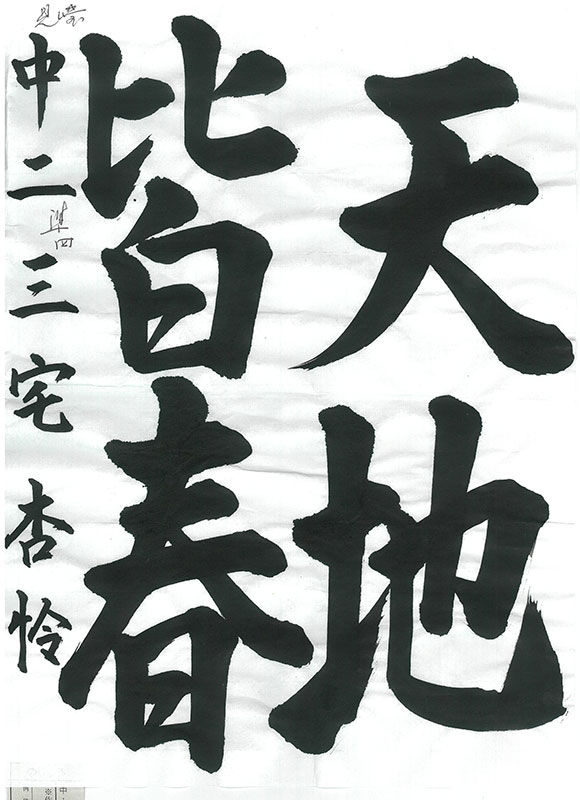 天地
皆春
中二 三宅杏怜
準四